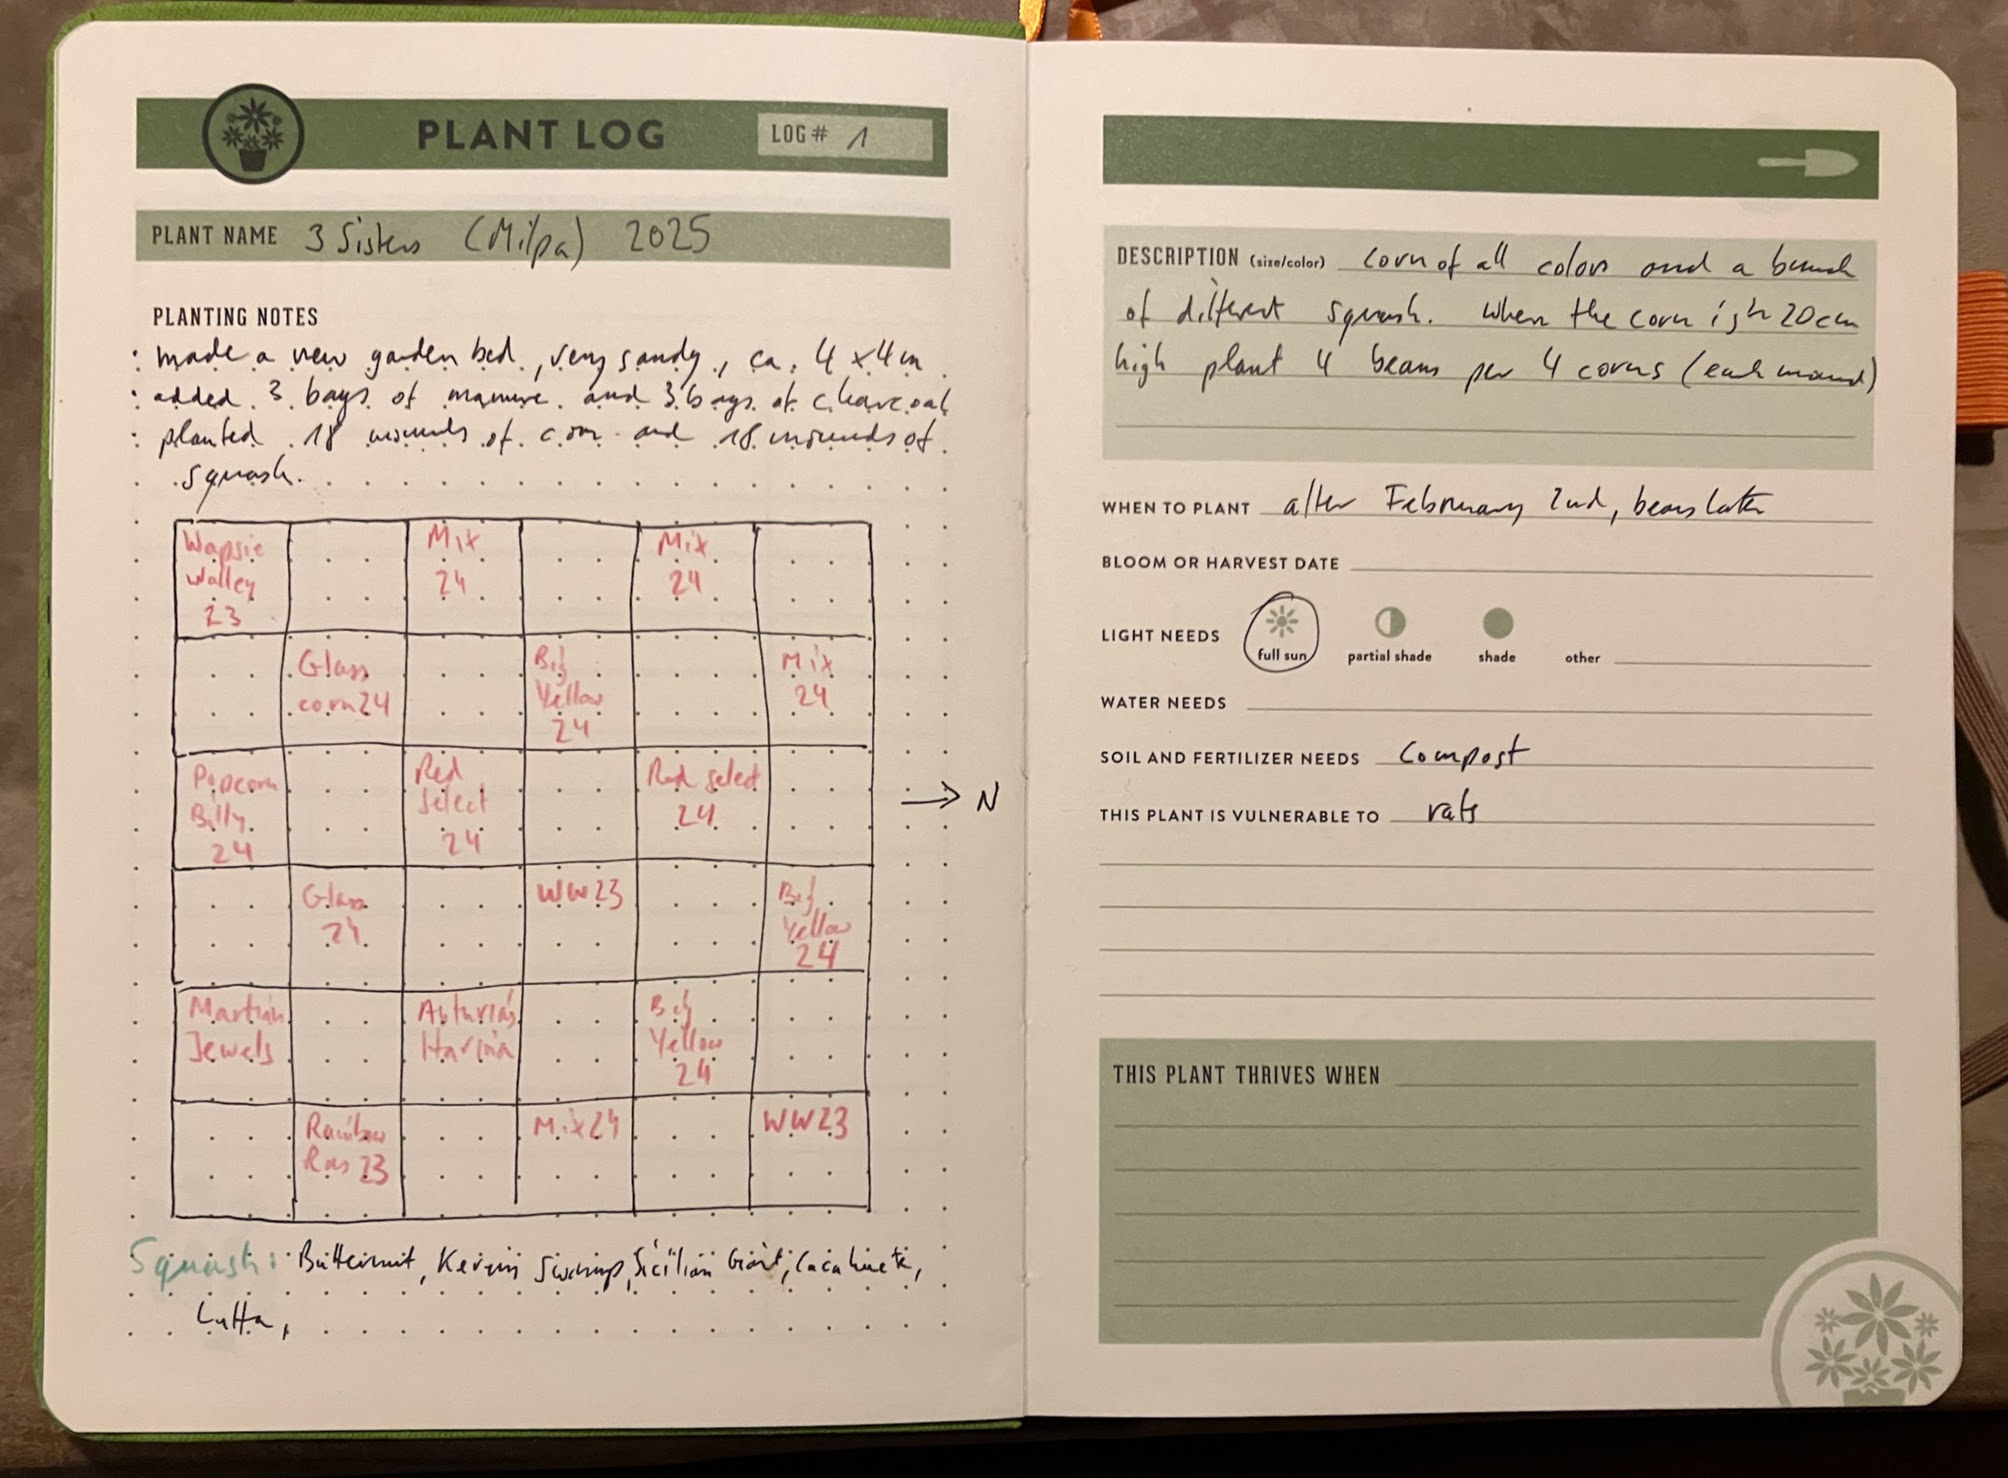 PLANT LOG
LOG # 1
PLANT NAME 3 Sisters (Milpa) 2025
PLANTING NOTES
made a new garden bed, very sandy, ca. 4 x 4 m
added 3 bags of manure and 3 bags of charcoal
planted 18 mounds of corn and 18 mounds of
squash.
Wapsie
Walley
23
Mix
24
Mix
24
Glass
corn 24
Big
Yellow
24
Mix
24
Popcorn
Billy
24
Red
select
24
Red select
24
→ N
Glass
24
WW23
Big
Yellow
24
Martian
Jewels
Asturias
Harina
Big
Yellow
24
Rainbow
23
Mix 24
WW23
Squash: Butternut, Swamp, Sicilian Giant, Cacahuete,
Luffa,
DESCRIPTION (size/color) corn of all colors and a bunch
of different squash. When the corn is 20cm
high plant 4 beans per 4 corns (each mound)
WHEN TO PLANT after February 2nd, beans later
BLOOM OR HARVEST DATE
LIGHT NEEDS full sun partial shade shade other
WATER NEEDS
SOIL AND FERTILIZER NEEDS Compost
THIS PLANT IS VULNERABLE TO rats
THIS PLANT THRIVES WHEN